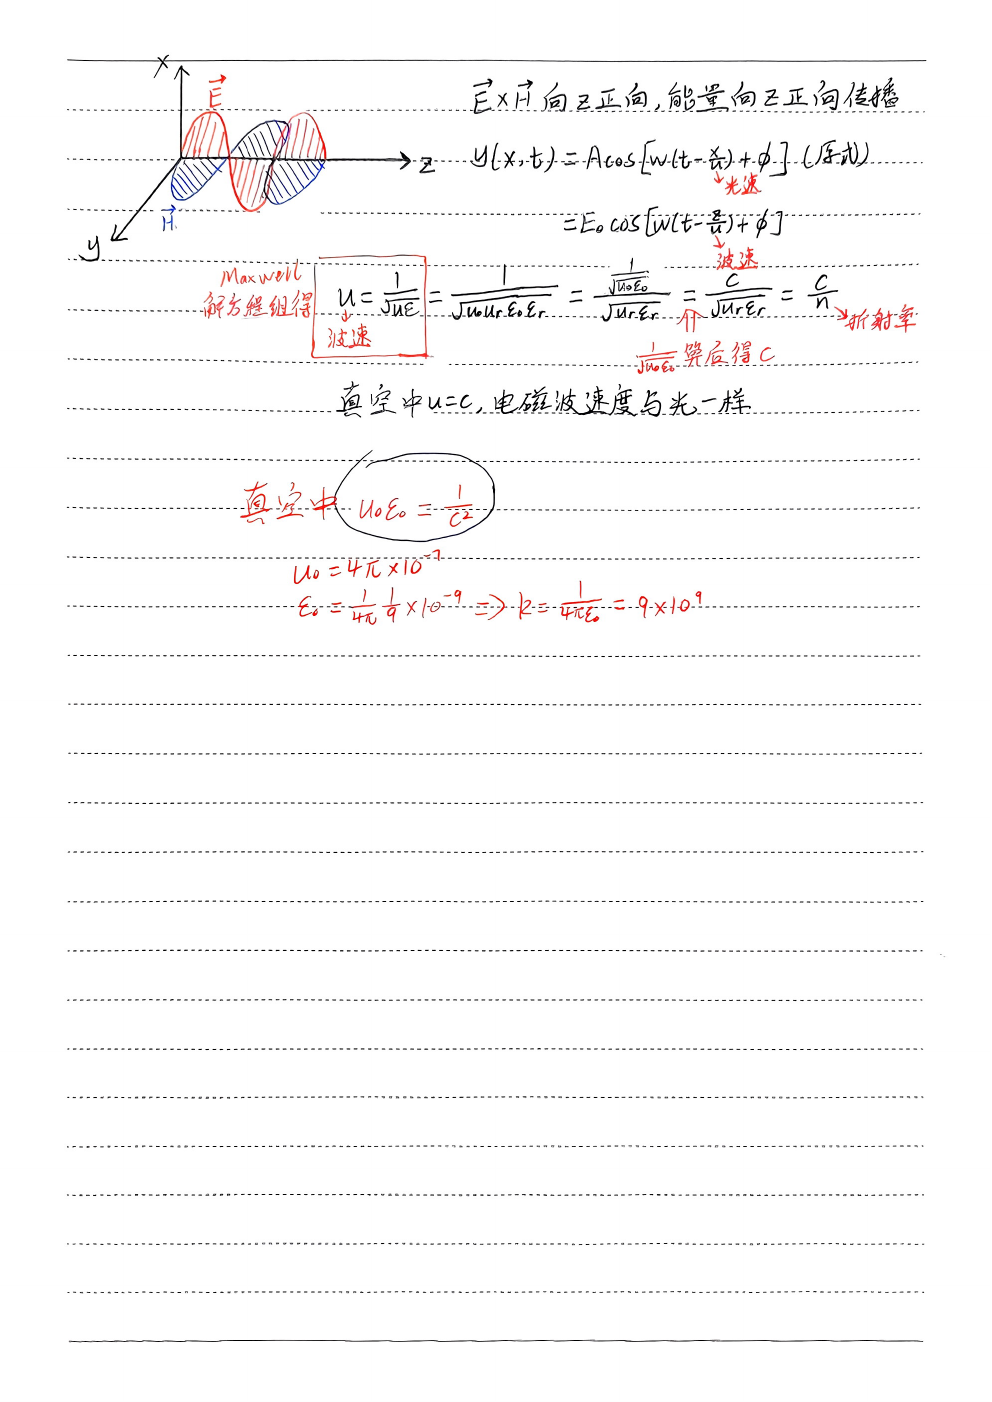 x
E⃗
E⃗×H⃗ 向z正向,能量向z正向传播
y(x,t) = Acos[w(t-x/u)+φ] (原式)
z
光速
H⃗
= E₀ cos[w(t-z/u)+φ]
y
波速
Maxwell
解方程组得
u = 1/√uε = 1/√u₀uᵣε₀εᵣ = (1/√u₀ε₀)/√uᵣεᵣ = c/√uᵣεᵣ = c/n
波速
折射率
1/√u₀ε₀ 算后得 c
真空中u=c,电磁波速度与光一样
真空中 u₀ε₀ = 1/c²
u₀ = 4π×10⁻⁷
ε₀ = 1/4π 1/9 ×10⁻⁹ => k = 1/4πε₀ = 9×10⁹